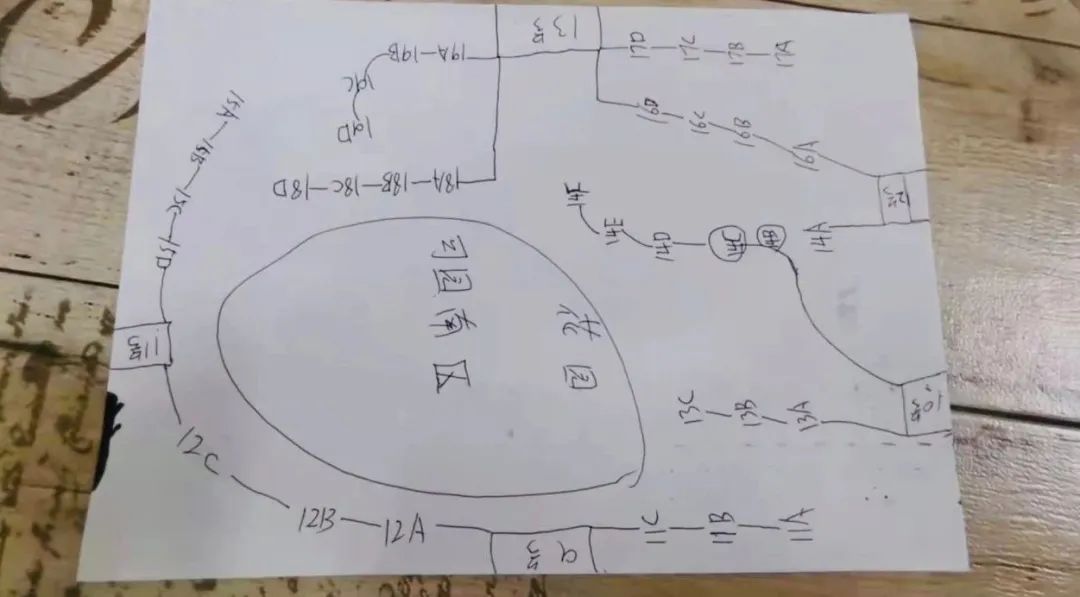 13号
19A-19B
19C
19D
17D-17C-17B-17A
16D-16C-16B-16A
12号
18A-18B-18C-18D
15A-15B-15C-15D
14F
14E
14D
14C
14B
14A
园南区
花园
11号
10号
13C-13B-13A
12C
12B-12A
9号
11C-11B-11A